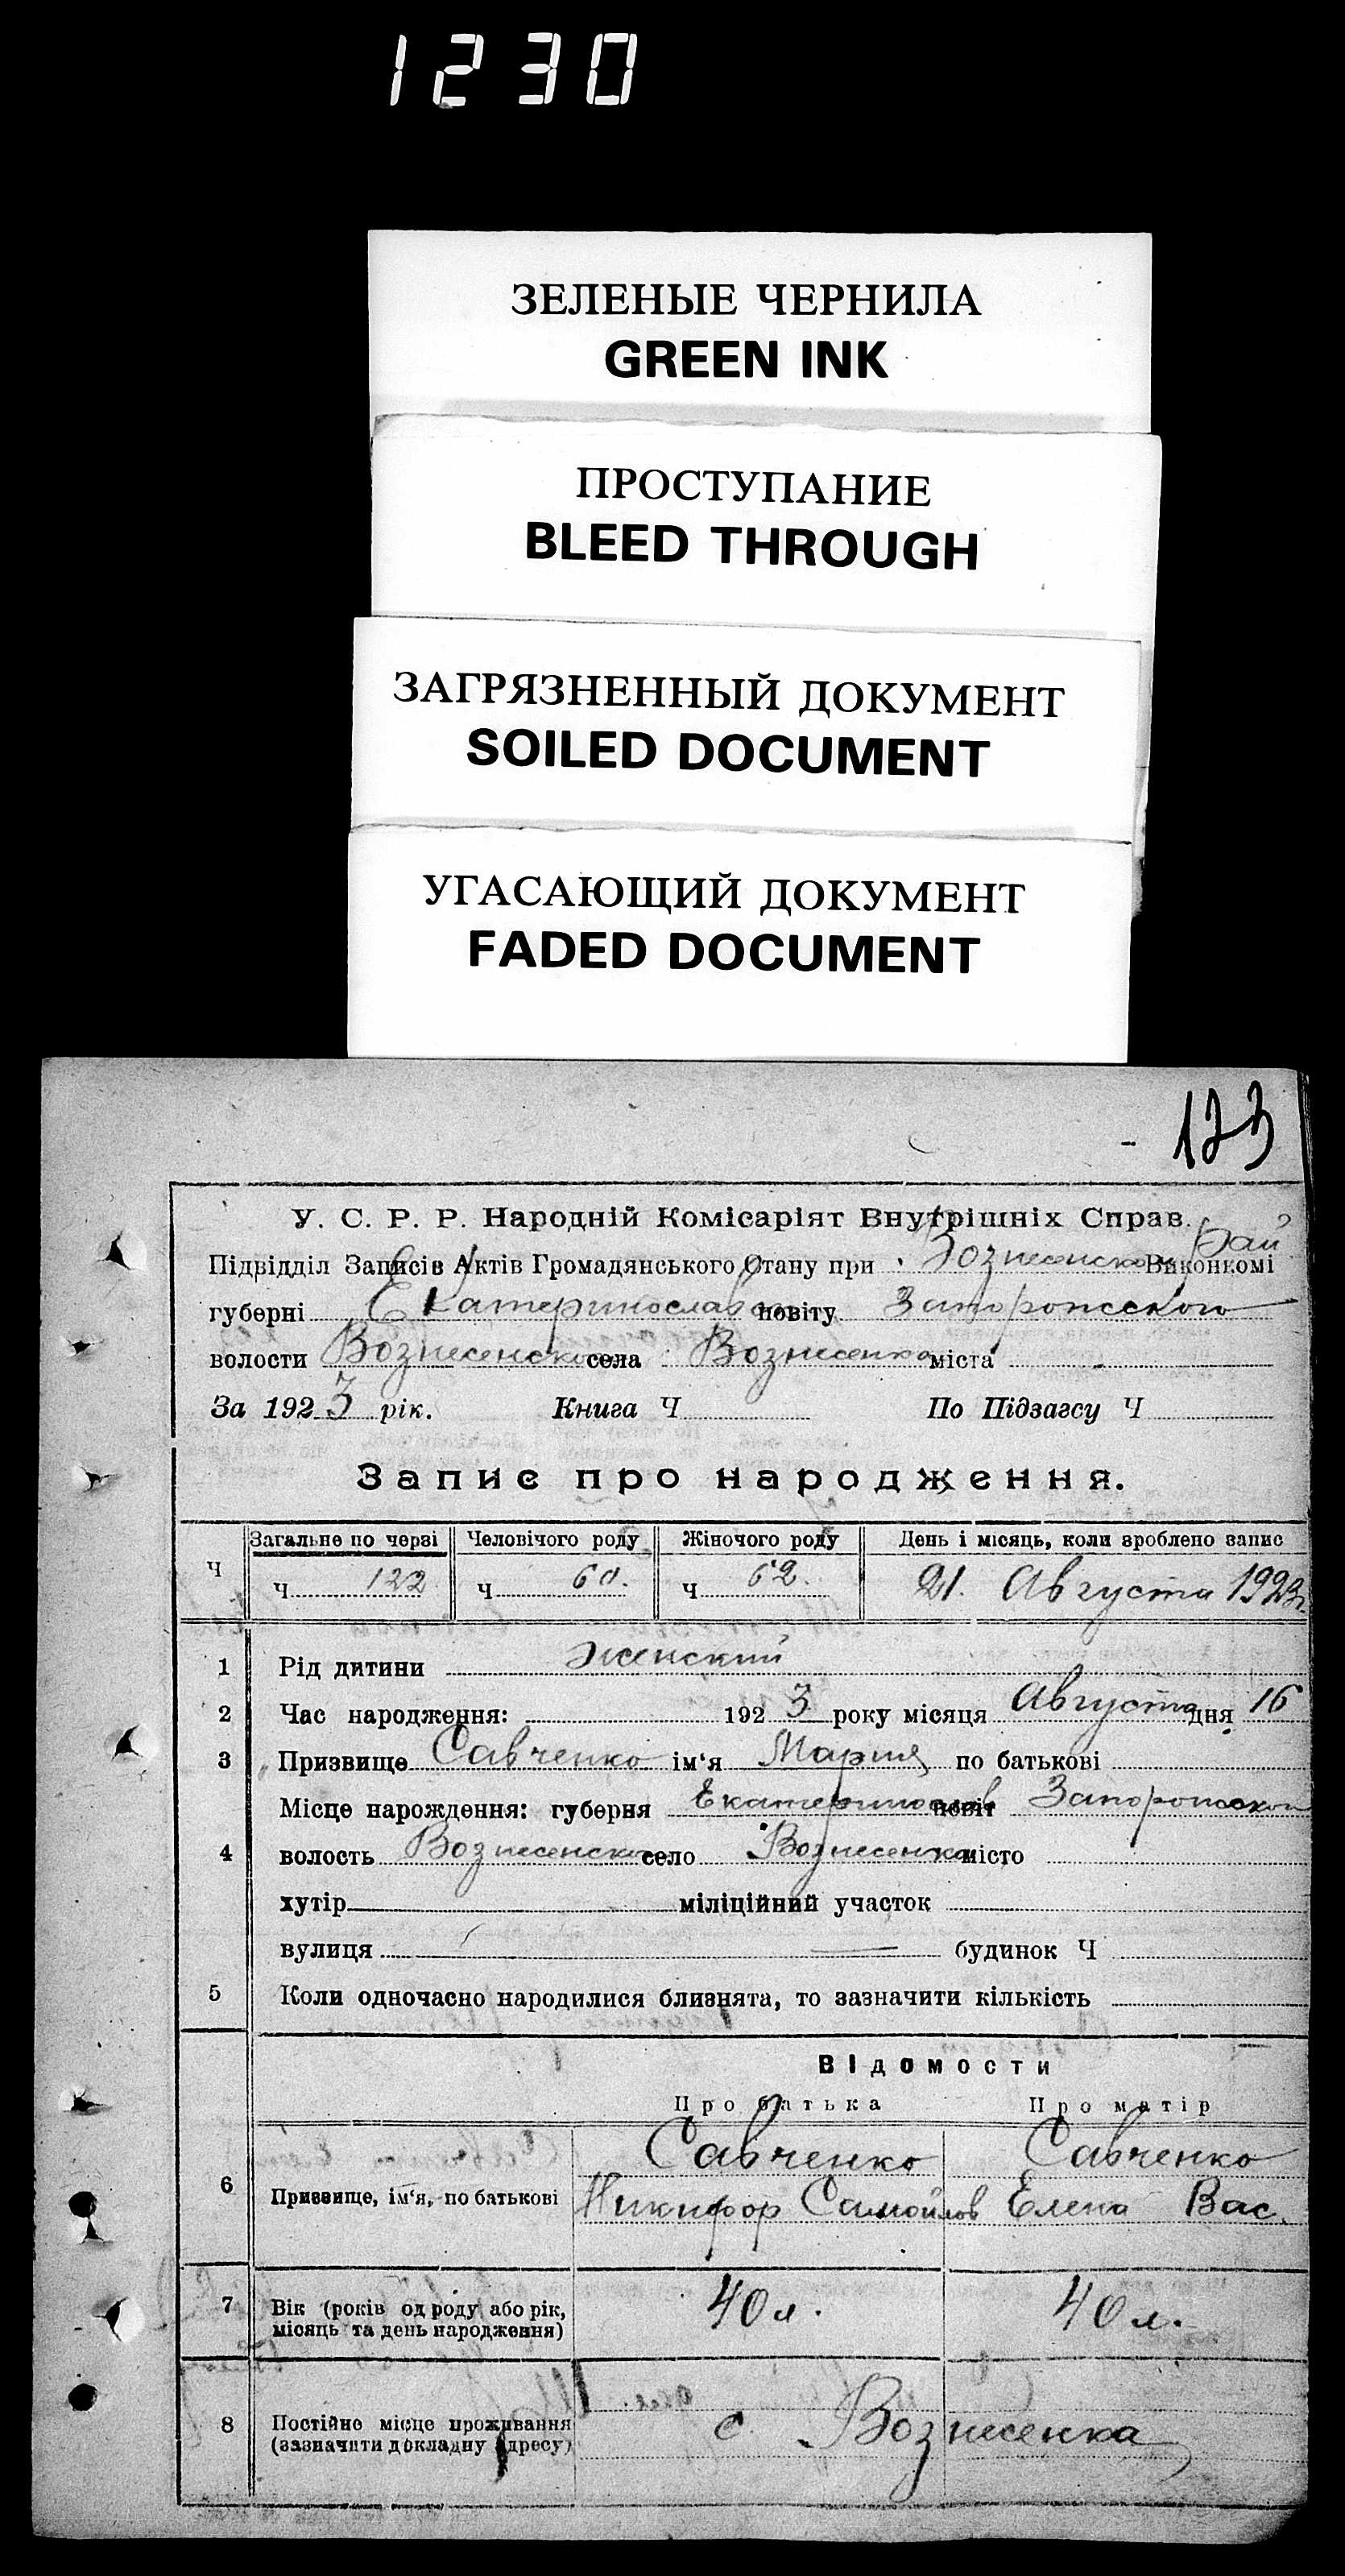 1230
ЗЕЛЕНЫЕ ЧЕРНИЛА
GREEN INK
ПРОСТУПАНИЕ
BLEED THROUGH
ЗАГРЯЗНЕННЫЙ ДОКУМЕНТ
SOILED DOCUMENT
УГАСАЮЩИЙ ДОКУМЕНТ
FADED DOCUMENT
- 123
У. С. Р. Р. Народній Комісаріят Внутрішніх Справ.
Підвідділ Записів Актів Громадянського Стану при Вознесенском Рай Виконкомі
губерні Екатеринослав повіту Запорожского
волости Вознесенско села Вознесенка міста
За 1923 рік. Книга Ч По Підзагсу Ч
Запис про народження.
Загальне по черзі Человічого роду Жіночого роду День і місяць, коли зроблено запис
Ч Ч 122 Ч 60. Ч 62. 21. Августа 1923г.
1 Рід дитини женский
2 Час народження: 1923 року місяця Августа дня 16
3 Призвище Савченко ім'я Мария по батькові
Місце народження: губерня Екатеринослав повіт Запорожской
4 волость Вознесенско село Вознесенка місто
хутір міліційний участок
вулиця будинок Ч
5 Коли одночасно народилися близнята, то зазначити кількість
Відомости
Про батька Про матір
Савченко Савченко
6 Призвище, ім'я, по батькові Никифор Самойлов Елена Вас.
7 Вік (років од роду або рік, 40 л. 40 л.
місяць та день народження)
8 Постійне місце проживання с. Вознесенка
(зазначити докладну адресу)